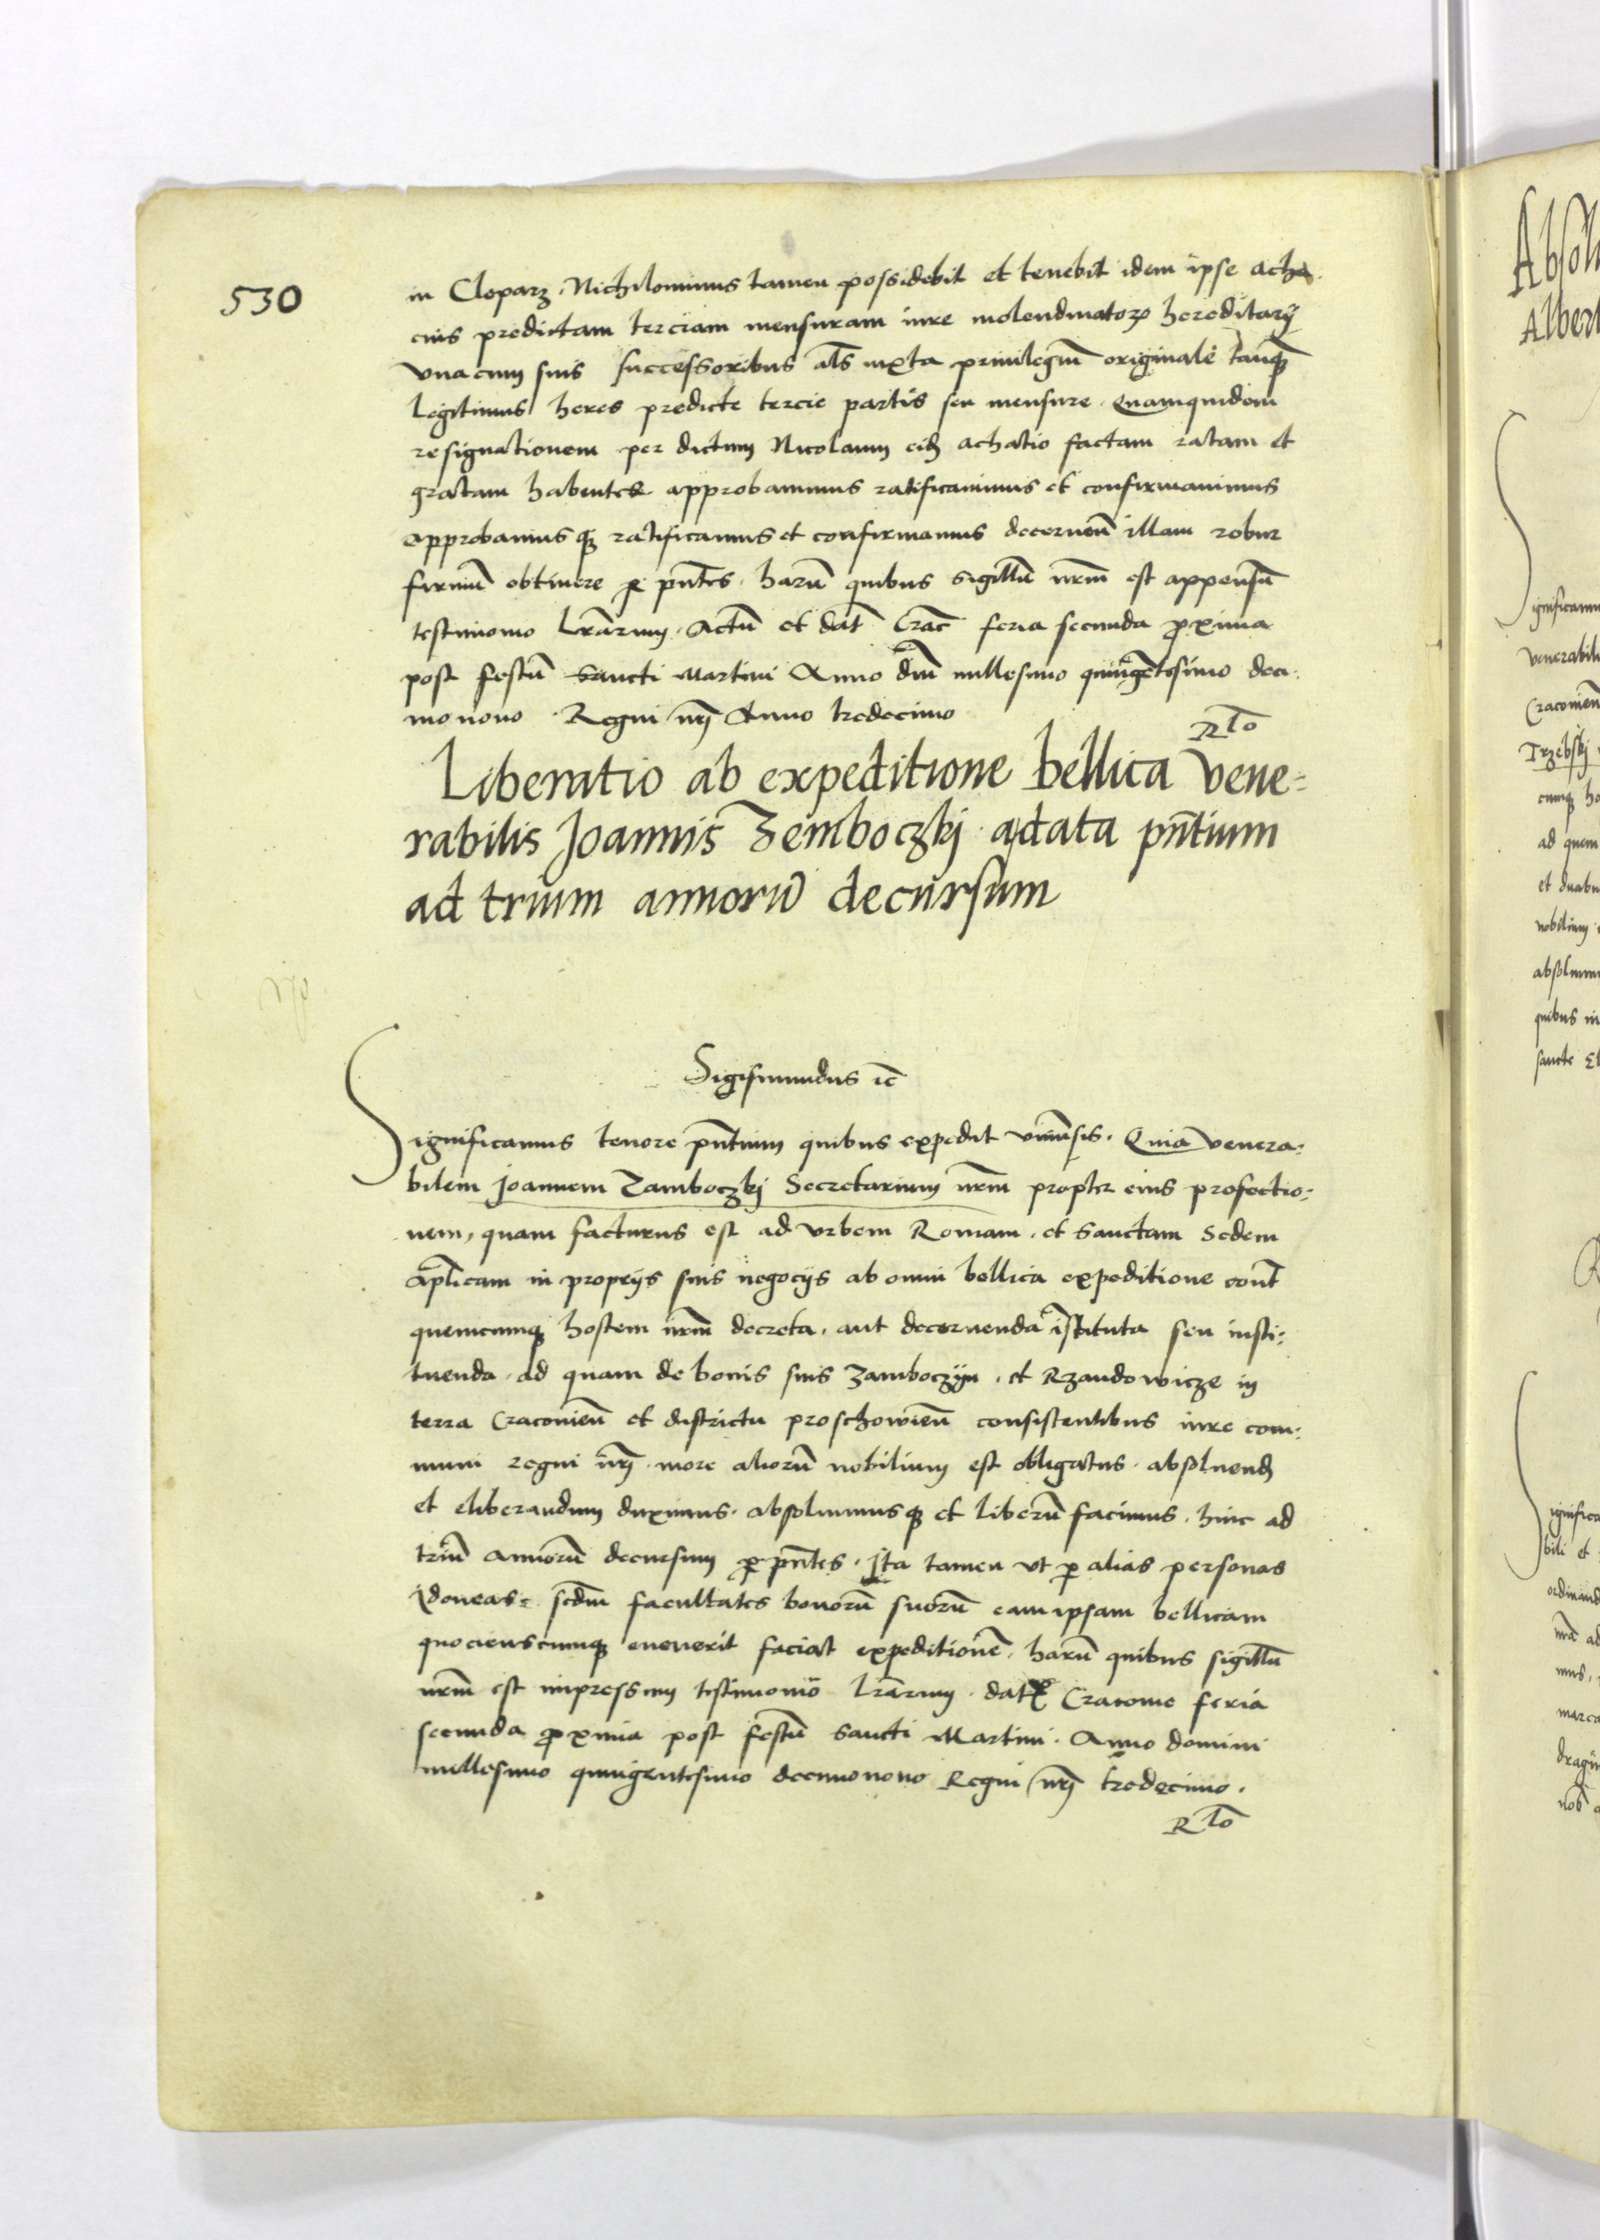 530
in Cloparz. Nichilominus tamen possidebit et tenebit idem ipse acha
cius predictam terciam mensuram iure molendinatorꝫ hereditarij
vna cum suis successoribus al̄s iuxta priuilegiū originale tanq̄
Legitimus heres predicte tercie partis seu mensure. Quamquidem
resignationem per dictum Nicolaum eid̄ achatio factam ratam et
gratam habentes approbauimus ratificauimus et confirmauimus
approbamusqꝫ ratificamus et confirmamus decerneñ illam robur
firmū obtinere ꝑ pñtes. harū quibus sigillū nr̄m est appensū
testimonio Lrārum. Actū et dat̄ Crac̄ feria secunda proxima
post festū Sancti Martini Anno dñi millesimo quingētesimo deci
mo nono Regni nr̄j Anno tredecimo
Rto
Liberatio ab expeditione bellica Vene-
rabilis Joannis Zemboczkj a data pñtium
ad trium annorū decursum
Sigismundus ic̄
Significamus tenore pñtium quibus expedit vniuersis. Quia Venera-
bilem Joannem Zamboczkj Secretarium nr̄m propter eius profectio-
nem, quam facturus est ad vrbem Romam. et Sanctam Sedem
aplicam in proprijs suis negocijs ab omni bellica expeditione cont̄
quemcumqꝫ hostem nr̄m decreta. aut decernenda īstituta seu insti-
tuenda. ad quam de bonis suis Zamboczijn. et Rzandowicze in
terra Cracouieñ et districtu proschowieñ consistentibus iure com-
muni regni nr̄j. more aliorū nobilium est obligatus. absoluend̄
et eliberandum duximus. absoluimusqꝫ et liberū facimus. hinc ad
triū annorū decursum ꝑ pñtes. Ita tamen vt ꝑ alias personas
ydoneas. scd̄m facultates bonorū suorū eam ipsam bellicam
quocienscumqꝫ euenerit faciat expeditionē. harū quibus sigillū
nr̄m est impressum testimonio Lrārum. dat̄ Cracouie feria
secunda proxima post festū Sancti Martini. Anno domini
millesimo quingentesimo decimonono Regni nr̄j tredecimo.
Rto